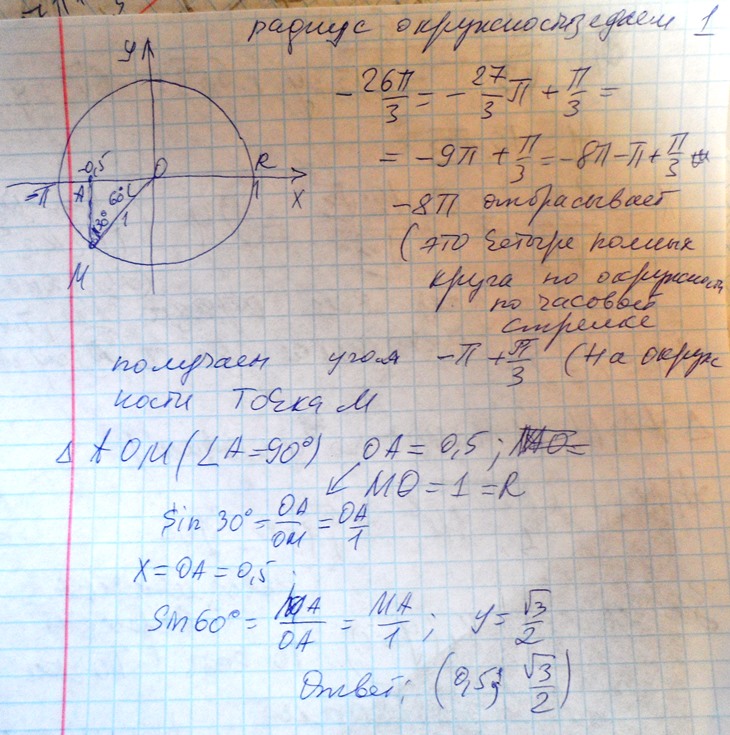 радиус окружности едаем 1
У
-26π/3 = -27/3 π + π/3 =
-0,5 O R
= -9π + π/3 = -8π - π + π/3
-π A 60° 1 X
30° 1
-8π отбрасывает
(это четыре полных
M
круга по окружности
по часовой
стрелке
получаем угол -π + π/3 (на окруж
ности точка M
Δ AOM (∠A = 90°) OA = 0,5;
MO = 1 = R
Sin 30° = OA/OM = OA/1
X = OA = 0,5
Sin 60° = MA/OA = MA/1; y = √3/2
Ответ: (0,5; √3/2)